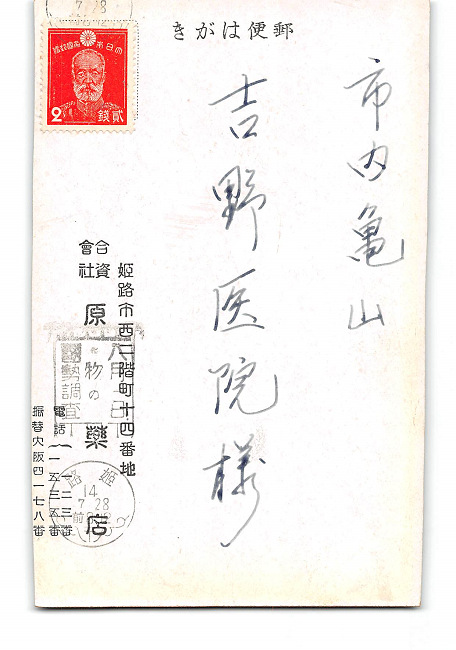 郵便はがき
市内亀山
吉野医院様
姫路市西二階町十四番地
合資
會社
原薬店
電話
一二三番
一五三五番
振替大阪四一七八番
大日本帝國郵便
2
貳錢
八月一日
物の
國勢調査
姫路
14
7 28